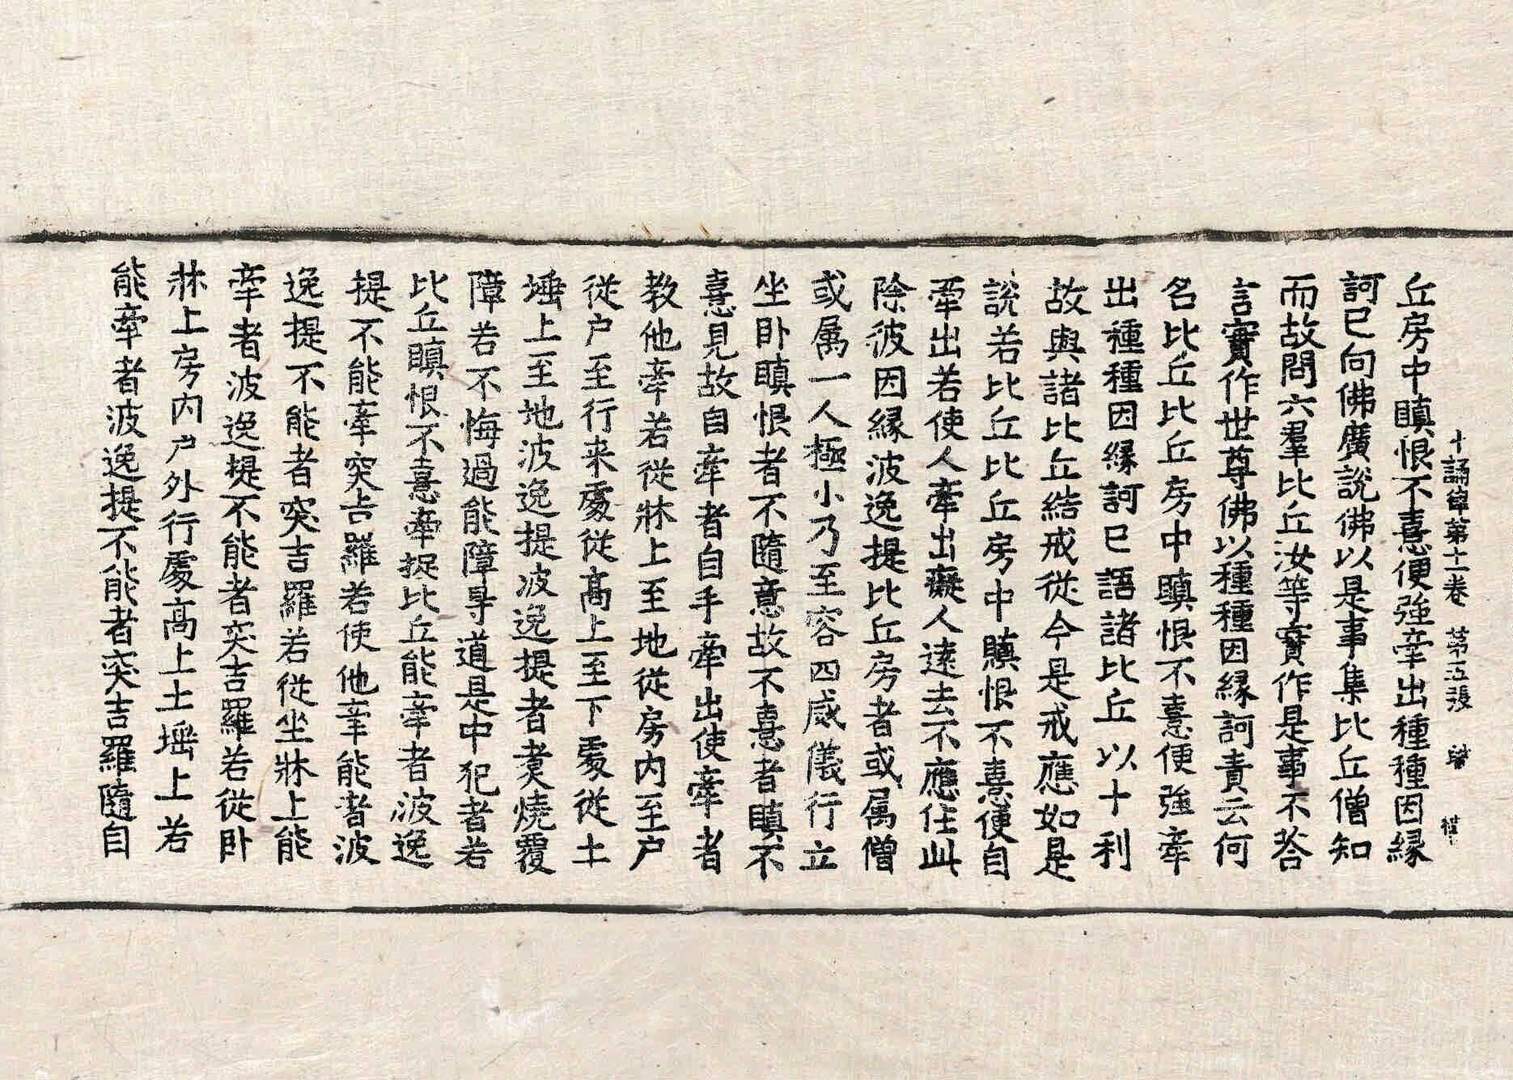 十誦律第十一卷 第五張
丘房中瞋恨不憙便強牽出種種因緣
訶已向佛廣說佛以是事集比丘僧知
而故問六羣比丘汝等實作是事不荅
言實作世尊佛以種種因緣訶責云何
名比丘比丘房中瞋恨不憙便強牽
出種種因緣訶已語諸比丘以十利
故與諸比丘結戒從今是戒應如是
說若比丘比丘房中瞋恨不憙便自
牽出若使人牽出癡人遠去不應住此
除彼因緣波逸提比丘房者或属僧
或属一人極小乃至容四威儀行立
坐卧瞋恨者不隨意故不憙者瞋不
憙見故自牽者自手牽出使牽者
教他牽若從牀上至地從房内至户
從户至行来處從髙上至下處從土
埵上至地波逸提波逸提者煑燒覆
障若不悔過能障㝵道是中犯者若
比丘瞋恨不憙牽捉比丘能牽者波逸
提不能牽突吉羅若使他牽能者波
逸提不能者突吉羅若從坐牀上能
牽者波逸提不能者突吉羅若從卧
牀上房内户外行處髙上土埵上若
能牽者波逸提不能者突吉羅隨自